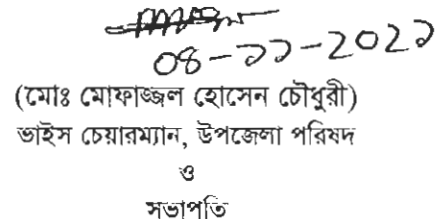 ০৪-১১-২০২১
(মোঃ মোফাজ্জল হোসেন চৌধুরী)
ভাইস চেয়ারম্যান, উপজেলা পরিষদ
ও
সভাপতি